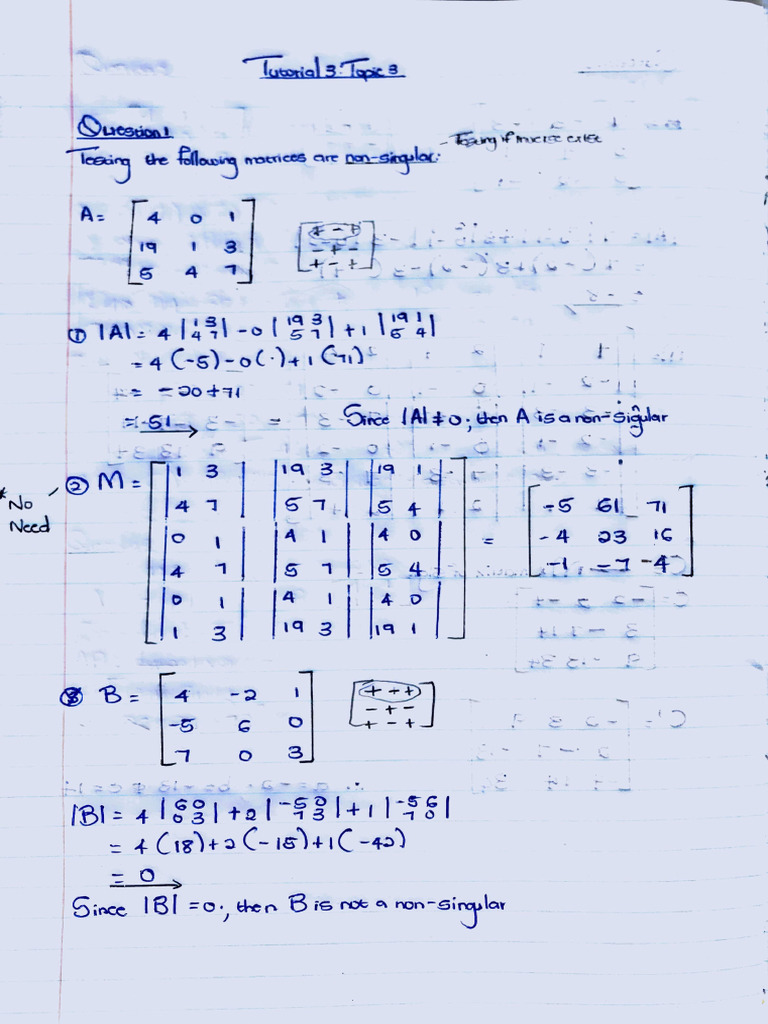 Tutorial 3: Topic 3
Question 1
Testing the following matrices are non-singular. - Testing if inverse exist
A = [4 0 1
19 1 3
5 4 7]
[+ - +
- + -
+ - +]
① |A| = 4 |1 3 4 7| - 0 |19 3 5 7| + 1 |19 1 5 4|
= 4(-5) - 0(.) + 1(71)
= -20 + 71
= 51 = Since |A| ≠ 0, then A is a non-sigular
* No Need
② M = [|1 3 4 7| |19 3 5 7| |19 1 5 4|
|0 1 4 7| |4 1 5 7| |4 0 5 4|
|0 1 1 3| |4 1 19 3| |4 0 19 1|]
= [-5 61 71
-4 23 16
-1 -7 -4]
B = [4 -2 1
-5 6 0
7 0 3]
[+ - +
- + -
+ - +]
|B| = 4 |6 0 0 3| + 2 |-5 0 7 3| + 1 |-5 6 7 0|
= 4(18) + 2(-15) + 1(-42)
= 0
Since |B| = 0, then B is not a non-singular